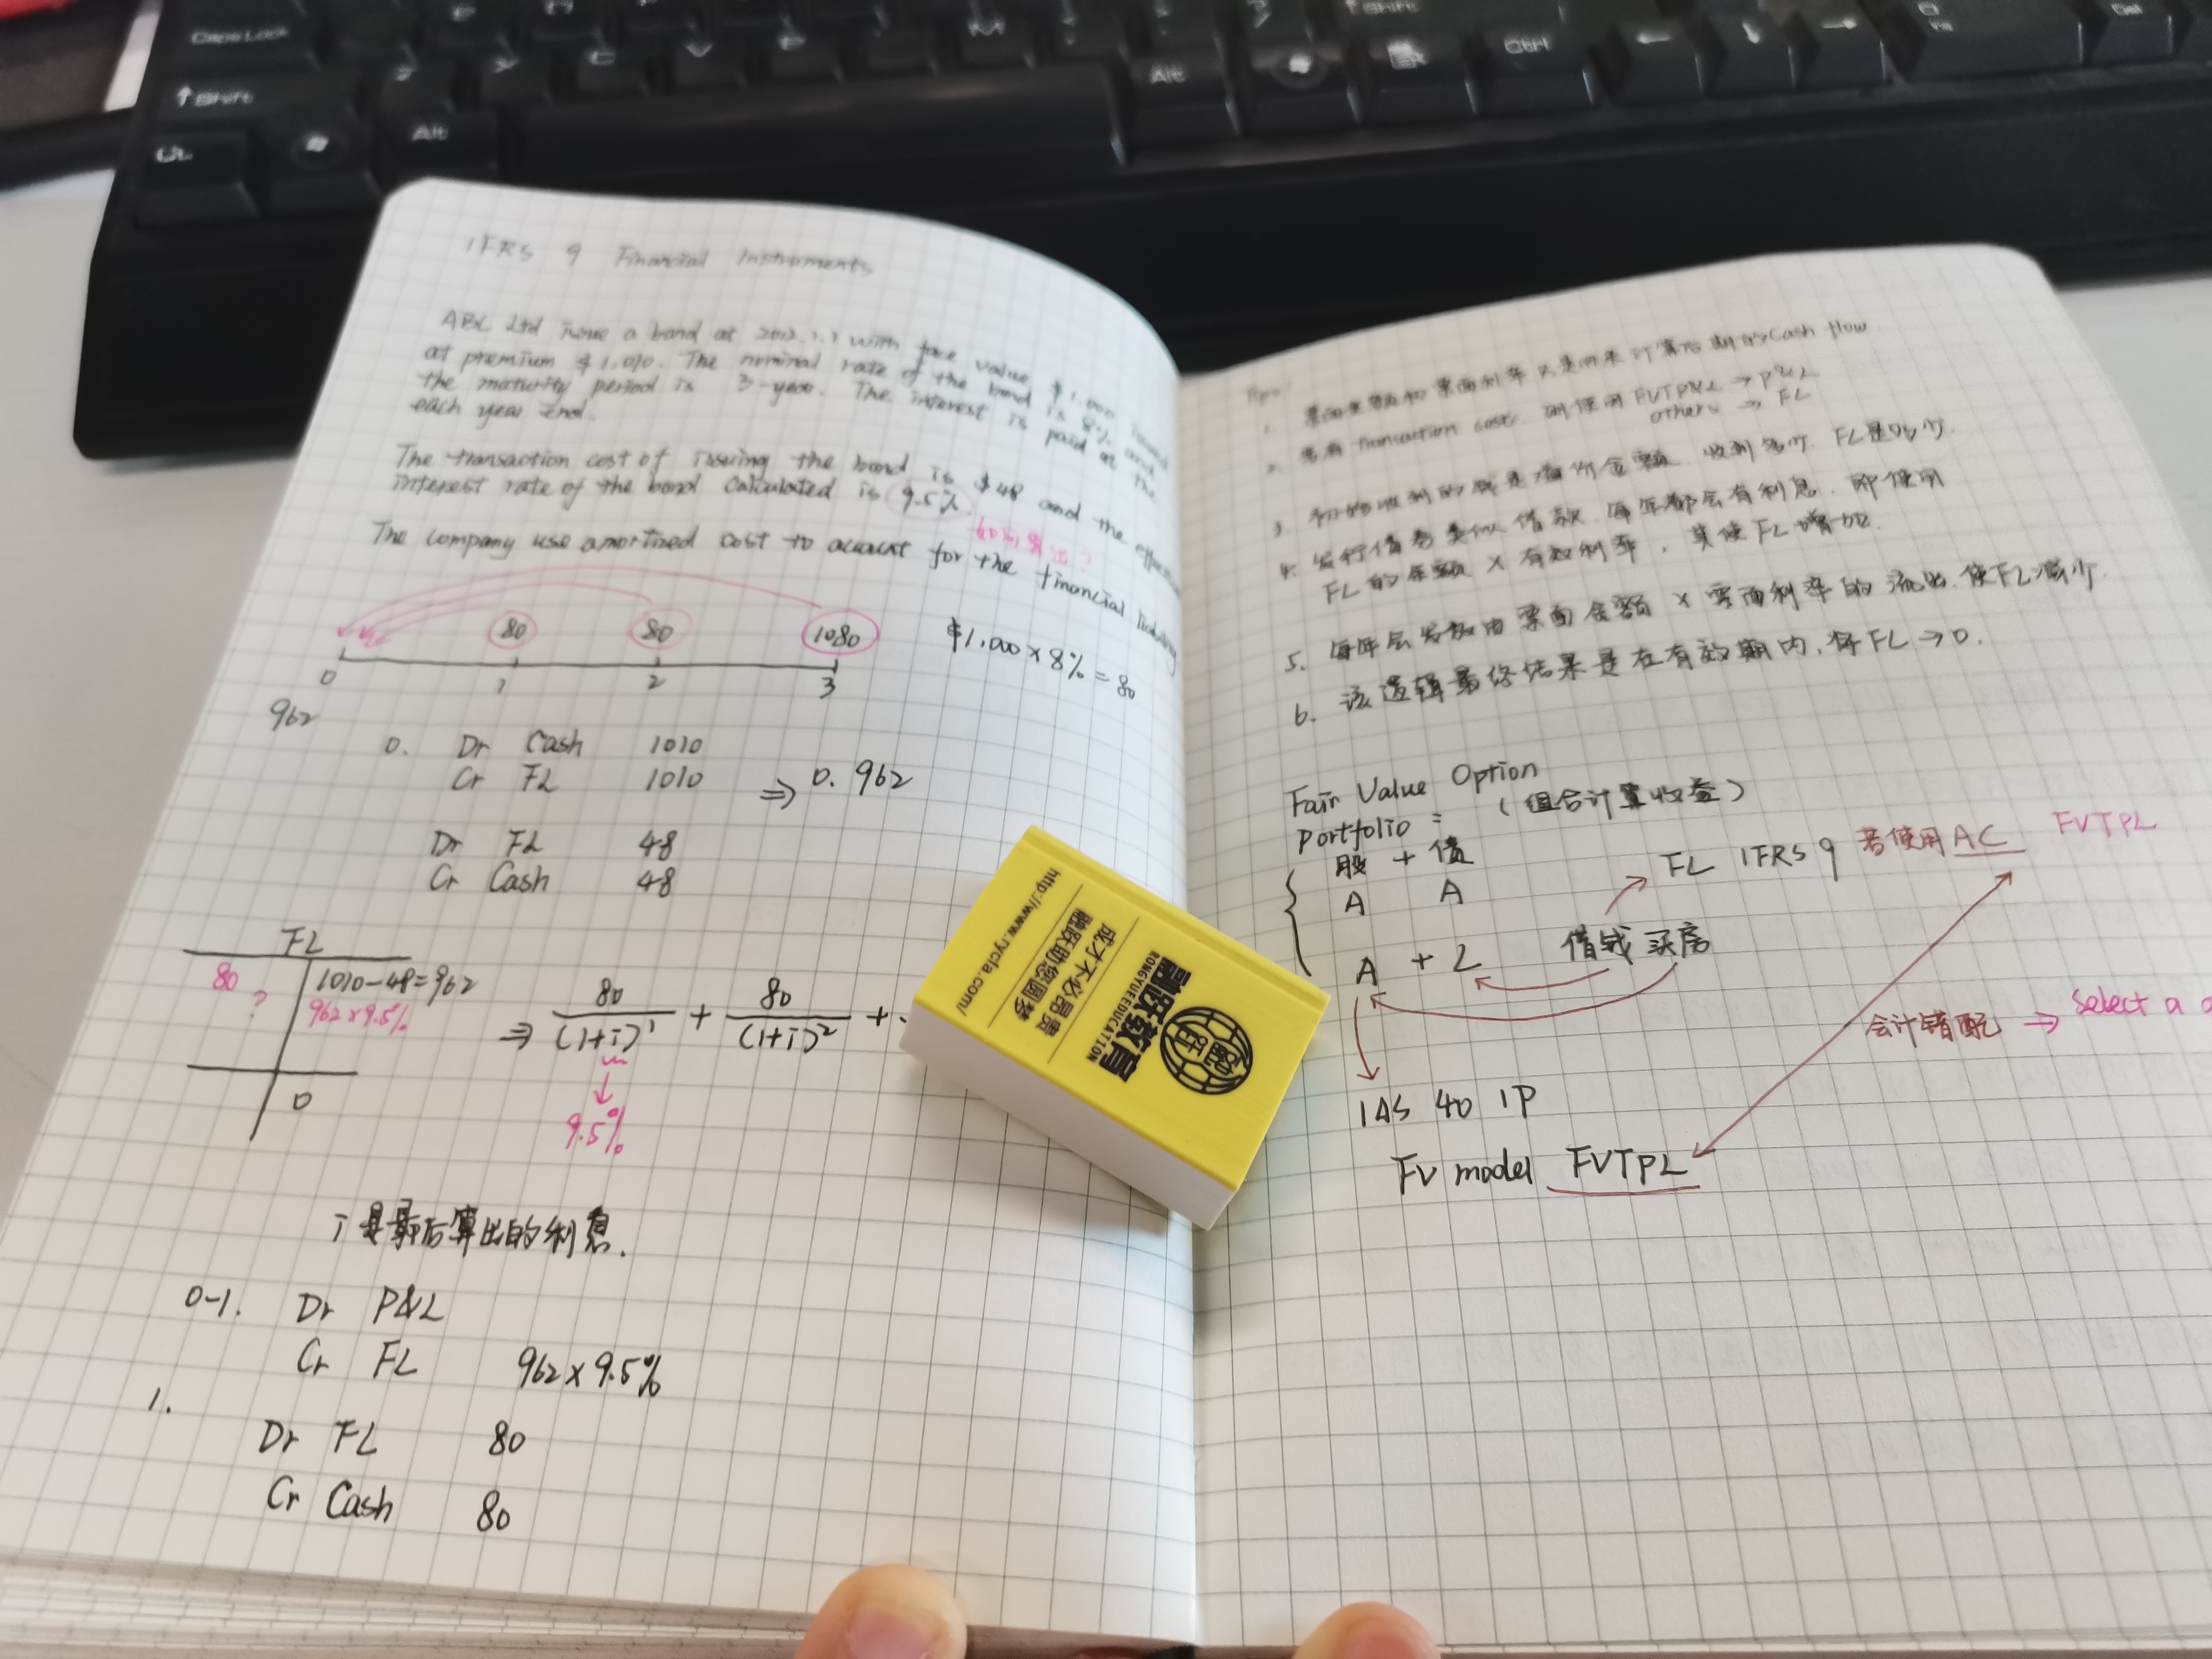 Caps Lock
↑ Shift
Alt
Alt
Ctrl
↑ Shift
IFRS 9 Financial Instruments
ABC Ltd issue a bond at 2012.1.1 with face value $1.000 issued
at premium $1.010. The nominal rate of the bond is 8% and
the maturity period is 3-year. The interest is paid at the
each year end.
The transaction cost of issuing the bond is $48 and the effective
interest rate of the bond calculated is 9.5%.
The company use amortized cost to account for the financial liability
80 80 1080
$1.000 × 8% = 80
0 1 2 3
962
0. Dr Cash 1010
Cr FL 1010 ⇒ 0. 962
Dr FL 48
Cr Cash 48
FL
80 1010-48=962
? 962×9.5%
0
⇒ 80/(1+i)¹ + 80/(1+i)² +
9.5%
i 是最后算出的利息.
0-1. Dr P&L
Cr FL 962×9.5%
1.
Dr FL 80
Cr Cash 80
Tips:
1. 票面金额和票面利率只是用来计算后期的Cash flow
2. 若有 transaction cost, 则使用 FVTP&L → P&L
others → FL
3. 初始收到的钱是溢价金额, 收到多少, FL是多少.
4. 发行债券类似借款, 每年都会有利息, 即使用
FL的余额 × 有效利率, 其使FL增加.
5. 每年会发放由票面金额 × 票面利率的流出, 使FL减少.
6. 该逻辑最终结果是在有效期内, 将FL → 0.
Fair Value Option
Portfolio : (组合计算收益)
股 + 债
A A
A + L
借钱买房
FL IFRS 9 若使用AC FVTPL
会计错配 ⇒ Select a
IAS 40 IP
FV model FVTPL
融跃教育
RONGYUEEDUCATION
成才不必昂贵
融跃助您圆梦
http://www.rycfa.com/